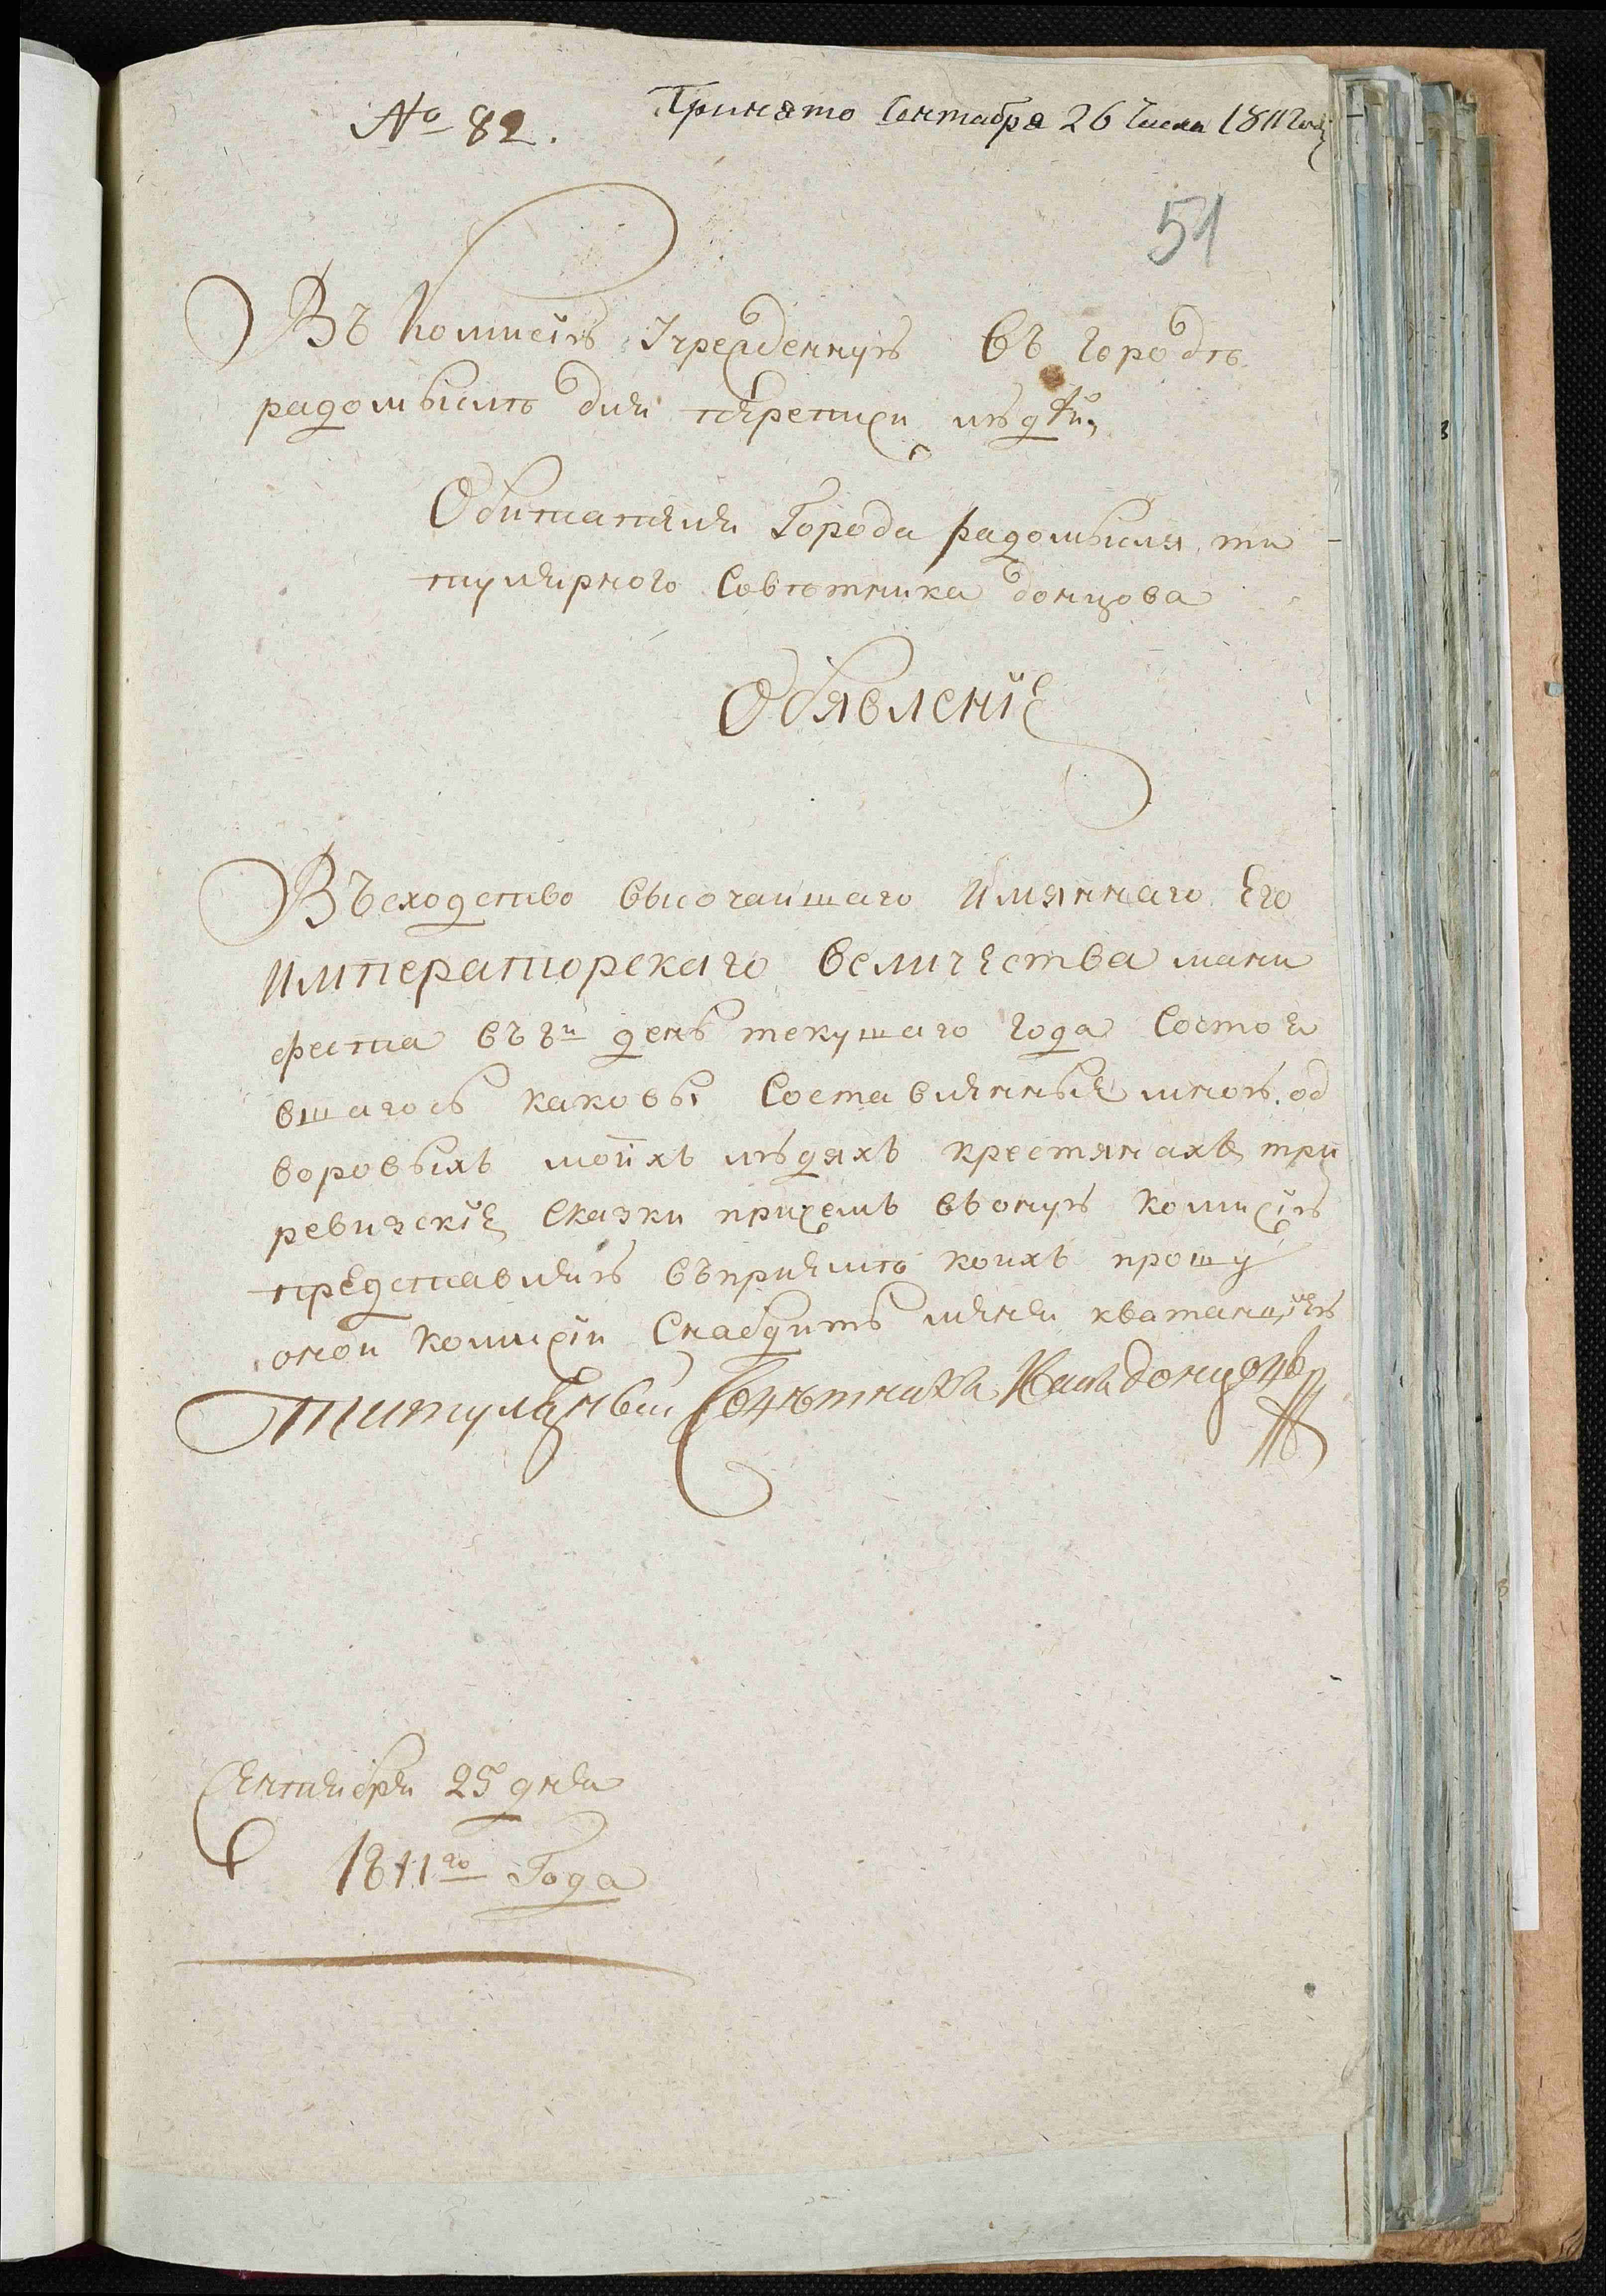 № 82.
Принято Сентабря 26 числа 1811 года
51
Въ Комисію Учрежденную въ городѣ
радомыслѣ для перепиζи людѣй,
Обитателя Города радомысля, ти
тулярного Совѣтника донцова
Обявленіе
Въ сходство высочаишаго Имяннаго Его
Императорскаго величества мани
феста въ 18й день текушаго года Состоя
вшагось каковы Составленные мною. од
воровыхъ моихъ людяхъ крестянахъ три
ревизскіе Сказки при семъ вь оную комисію
представляю въ пріиомѣ коихъ прошу
оной комисіи Снабдить меня кватанціею
титулярный Совѣтникъ донцовъ
Сентября 25 дня
1811го Года